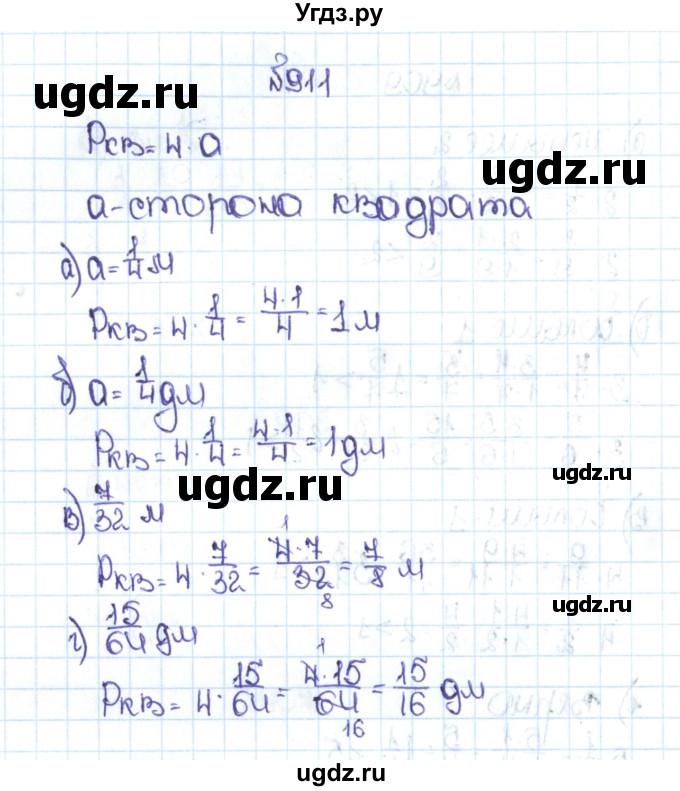 Угдз.ру
№911
ugdz.ru
Pкв = 4 · a
ugdz.ru
a - сторона квадрата
а) a = 1/4 м
Pкв = 4 · 1/4 = 4·1/4 = 1 м
б) a = 1/4 дм
Pкв = 4 · 1/4 = 4·1/4 = 1 дм
ugdz.ru
ugdz.ru
в) 7/32 м
1
Pкв = 4 · 7/32 = 4·7/32 = 7/8 м
8
ugdz.ru
г) 15/64 дм
1
Pкв = 4 · 15/64 = 4·15/64 = 15/16 дм
16
ugdz.ru
ugdz.ru